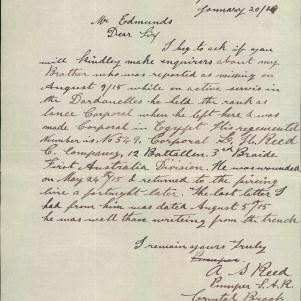 January 20/16
Mr Edmunds
Dear Sir
I beg to ask if you
will kindley make enquirers about my
Brother who was reported as missing on
August 9/15 while on active servis in
the Dardanelles he held the rank as
lance Corporal when he left here & was
made Corporal in Egypt His regemental
Number is No 549. Corporal L. H. Reed
C. Company, 12 Battallon. 3rd Braide
First Australia Division. He was wounded
on May 24th/15 & returned to the firing
line a fortnight later. The last letter I
had from him was dated August 5/15
he was well those writing from the trench
I remain yours Truly
A S Reed
Pumper S.A.R.
Brook